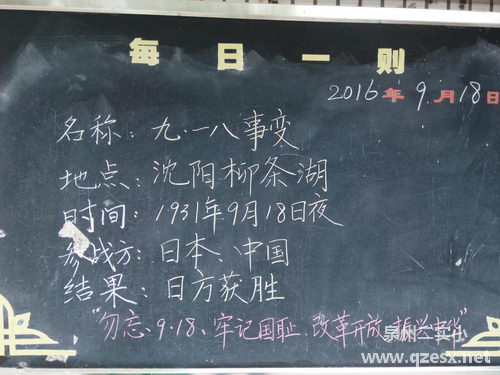 每日一则
2016年9月18日
名称：九·一八事变
地点：沈阳柳条湖
时间：1931年9月18日夜
参战方：日本、中国
结果：日方获胜
"勿忘9·18、牢记国耻、改革开放、振兴
泉州二实小
www.qzesx.net